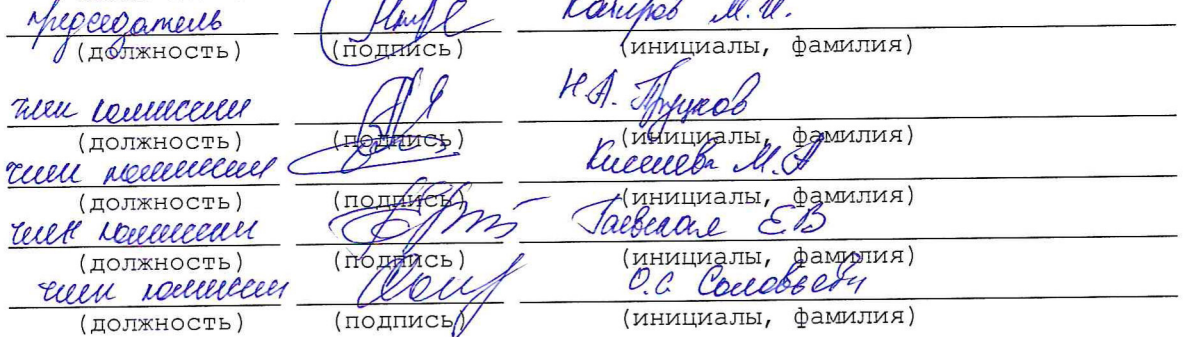 председатель Каширов М.И.
(должность) (подпись) (инициалы, фамилия)
член комиссии Н.А. Пруцков
(должность) (подпись) (инициалы, фамилия)
член комиссии Киселева М.А
(должность) (подпись) (инициалы, фамилия)
член комиссии Гаевская ЕВ
(должность) (подпись) (инициалы, фамилия)
член комиссии О.С.
(должность) (подпись) (инициалы, фамилия)